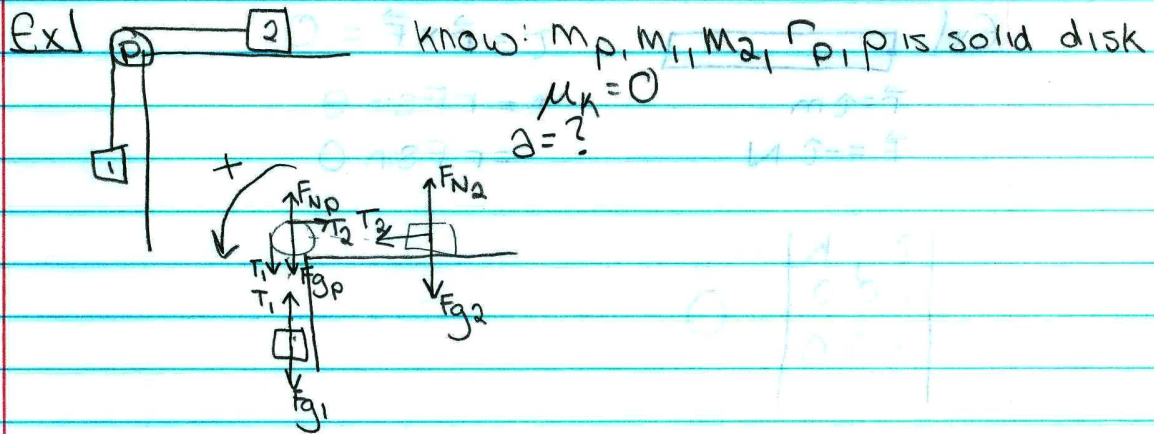 Ex1
P 2 know: mp, m1, m2, rp, p is solid disk
μk=0
1 a=?
+
FNp FN2
T2 T2
T1 Fgp
T1 Fg2
Fg1